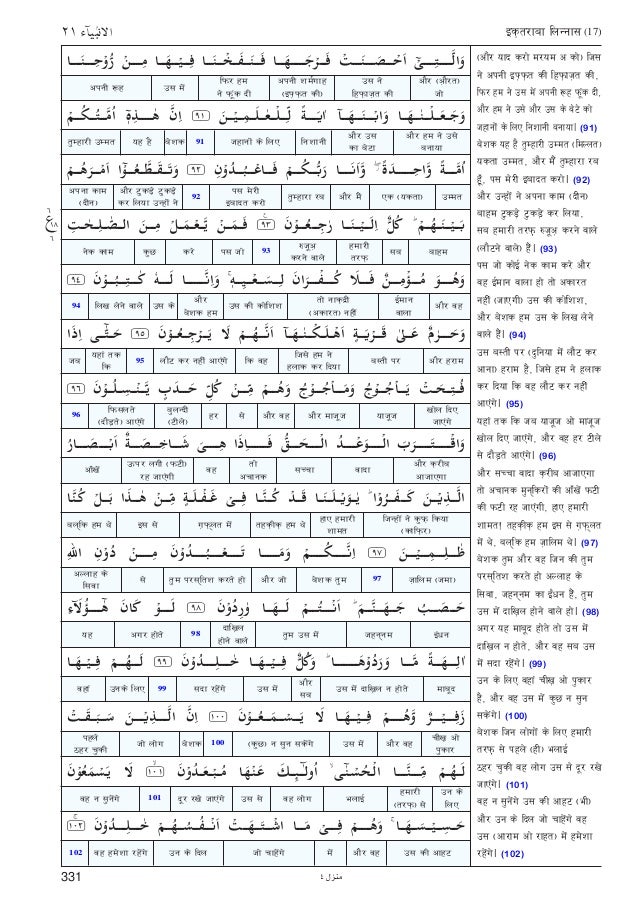 الانبيآء ٢١
इक़्तराबा लिन्नास (17)
وَالَّتِىْٓ اَحْصَنَتْ فَرْجَهَا فَنَفَخْنَا فِيْهَا مِنْ رُّوْحِنَا
और (औरत) जो | उस ने हिफ़ाज़त की | अपनी शर्मगाह (इफ़्फ़त की) | फिर हम ने फूंक दी | उस में | अपनी रूह
وَجَعَلْنٰهَا وَابْنَهَآ اٰيَةً لِّلْعٰلَمِيْنَ ٩١ اِنَّ هٰذِهٖٓ اُمَّتُكُمْ
और हम ने उसे बनाया | और उस का बेटा | निशानी | जहानों के लिए | 91 | बेशक | यह है | तुम्हारी उम्मत
اُمَّةً وَّاحِدَةً ۖ وَّاَنَا رَبُّكُمْ فَاعْبُدُوْنِ ٩٢ وَتَقَطَّعُوْٓا اَمْرَهُمْ
उम्मत | एक (यकता) | और मैं | तुम्हारा रब | पस मेरी इबादत करो | 92 | और टुकड़े टुकड़े कर लिया उन्हों ने | अपना काम (दीन)
بَيْنَهُمْ ۭ كُلٌّ اِلَيْنَا رٰجِعُوْنَ ٩٣ فَمَنْ يَّعْمَلْ مِنَ الصّٰلِحٰتِ
बाहम | सब | हमारी तरफ़ | रुजूअ़ करने वाले | 93 | पस जो | करे | कुछ | नेक काम
وَهُوَ مُؤْمِنٌ فَلَا كُفْرَانَ لِسَعْيِهٖ ۚ وَاِنَّا لَهٗ كٰتِبُوْنَ ٩٤
और वह | ईमान वाला | तो नाकद्री (अकारत) नहीं | उस की कोशिश | और बेशक हम | उस के | लिख लेने वाले | 94
وَحَرٰمٌ عَلٰى قَرْيَةٍ اَهْلَكْنٰهَآ اَنَّهُمْ لَا يَرْجِعُوْنَ ٩٥ حَتّٰٓى اِذَا
और हराम | बस्ती पर | जिसे हम ने हलाक कर दिया | कि वह | लौट कर नहीं आएंगे | 95 | यहां तक कि | जब
فُتِحَتْ يَاْجُوْجُ وَمَاْجُوْجُ وَهُمْ مِّنْ كُلِّ حَدَبٍ يَّنْسِلُوْنَ ٩٦
खोल दिए जाएंगे | याजूज | और माजूज | और वह | से | हर | बुलन्दी (टीले) | फिसलते (दौड़ते) आएंगे | 96
وَاقْتَرَبَ الْوَعْدُ الْحَقُّ فَاِذَا هِىَ شَاخِصَةٌ اَبْصَارُ
और क़रीब आजाएगा | वादा | सच्चा | तो अचानक | वह | ऊपर लगी (फटी) रह जाएंगी | आँखें
الَّذِيْنَ كَفَرُوْا ۭ يٰوَيْلَنَا قَدْ كُنَّا فِىْ غَفْلَةٍ مِّنْ هٰذَا بَلْ كُنَّا
जिन्हों ने कुफ़्र किया (काफ़िर) | हाए हमारी शामत | तहक़ीक़ हम थे | ग़फ़्लत में | इस से | बल्कि हम थे
ظٰلِمِيْنَ ٩٧ اِنَّكُمْ وَمَا تَعْبُدُوْنَ مِنْ دُوْنِ اللّٰهِ
ज़ालिम (जमा) | 97 | बेशक तुम | और जो | तुम परस्तिश करते हो | से | अल्लाह के सिवा
حَصَبُ جَهَنَّمَ ۭ اَنْتُمْ لَهَا وٰرِدُوْنَ ٩٨ لَوْ كَانَ هٰٓؤُلَآءِ
ईंधन | जहन्नम | तुम उस में | दाख़िल होने वाले | 98 | अगर होते | यह
اٰلِهَةً مَّا وَرَدُوْهَا ۭ وَكُلٌّ فِيْهَا خٰلِدُوْنَ ٩٩ لَهُمْ فِيْهَا
माबूद | उस में दाख़िल न होते | और सब | उस में | सदा रहेंगे | 99 | उनके लिए | वहां
زَفِيْرٌ وَّهُمْ فِيْهَا لَا يَسْمَعُوْنَ ١٠٠ اِنَّ الَّذِيْنَ سَبَقَتْ
चीख़ ओ पुकार | और वह | उस में | (कुछ) न सुन सकेंगे | 100 | बेशक | जो लोग | पहले ठहर चुकी
لَهُمْ مِّنَّا الْحُسْنٰٓى ۙ اُولٰٓئِكَ عَنْهَا مُبْعَدُوْنَ ١٠١ لَا يَسْمَعُوْنَ
उन के लिए | हमारी (तरफ़) से | भलाई | वह लोग | उस से | दूर रखे जाएंगे | 101 | वह न सुनेंगे
حَسِيْسَهَا ۚ وَهُمْ فِىْ مَا اشْتَهَتْ اَنْفُسُهُمْ خٰلِدُوْنَ ١٠٢
उस की आहट | और वह | में | जो चाहेंगे | उन के दिल | वह हमेशा रहेंगे | 102
(और याद करो मरयम अ को) जिस
ने अपनी इफ़्फ़त की हिफ़ाज़त की,
फिर हम ने उस में अपनी रूह फूंक दी,
और हम ने उसे और उस के बेटे को
जहानों के लिए निशानी बनाया। (91)
बेशक यह है तुम्हारी उम्मत (मिल्लत)
यकता उम्मत, और मैं तुम्हारा रब
हूँ, पस मेरी इबादत करो। (92)
और उन्हों ने अपना काम (दीन)
बाहम टुकड़े टुकड़े कर लिया,
सब हमारी तरफ़ रुजूअ़ करने वाले
(लौटने वाले) हैं। (93)
पस जो कोई नेक काम करे और
वह ईमान वाला हो तो अकारत
नहीं (जाएगी) उस की कोशिश,
और बेशक हम उस के लिख लेने
वाले हैं। (94)
उस बस्ती पर (दुनिया में लौट कर
आना) हराम है, जिसे हम ने हलाक
कर दिया कि वह लौट कर नहीं
आएंगे। (95)
यहां तक कि जब याजूज ओ माजूज
खोल दिए जाएंगे, और वह हर टीले
से दौड़ते आएंगे। (96)
और सच्चा वादा क़रीब आजाएगा
तो अचानक मुन्किरों की आँखें फटी
की फटी रह जाएंगी, हाए हमारी
शामत! तहक़ीक़ हम इस से ग़फ़्लत
में थे, बल्कि हम ज़ालिम थे। (97)
बेशक तुम और वह जिन की तुम
परस्तिश करते हो अल्लाह के
सिवा, जहन्नम का ईंधन हैं, तुम
उस में दाख़िल होने वाले हो। (98)
अगर यह माबूद होते तो उस में
दाख़िल न होते, और वह सब उस
में सदा रहेंगे। (99)
उन के लिए वहां चीख़ ओ पुकार
है, और वह उस में कुछ न सुन
सकेंगे। (100)
बेशक जिन लोगों के लिए हमारी
तरफ़ से पहले (ही) भलाई
ठहर चुकी वह लोग उस से दूर रखे
जाएंगे। (101)
वह न सुनेंगे उस की आहट (भी)
और उन के दिल जो चाहेंगे वह
उस (आराम ओ राहत) में हमेशा
रहेंगे। (102)
331
منزل ٤